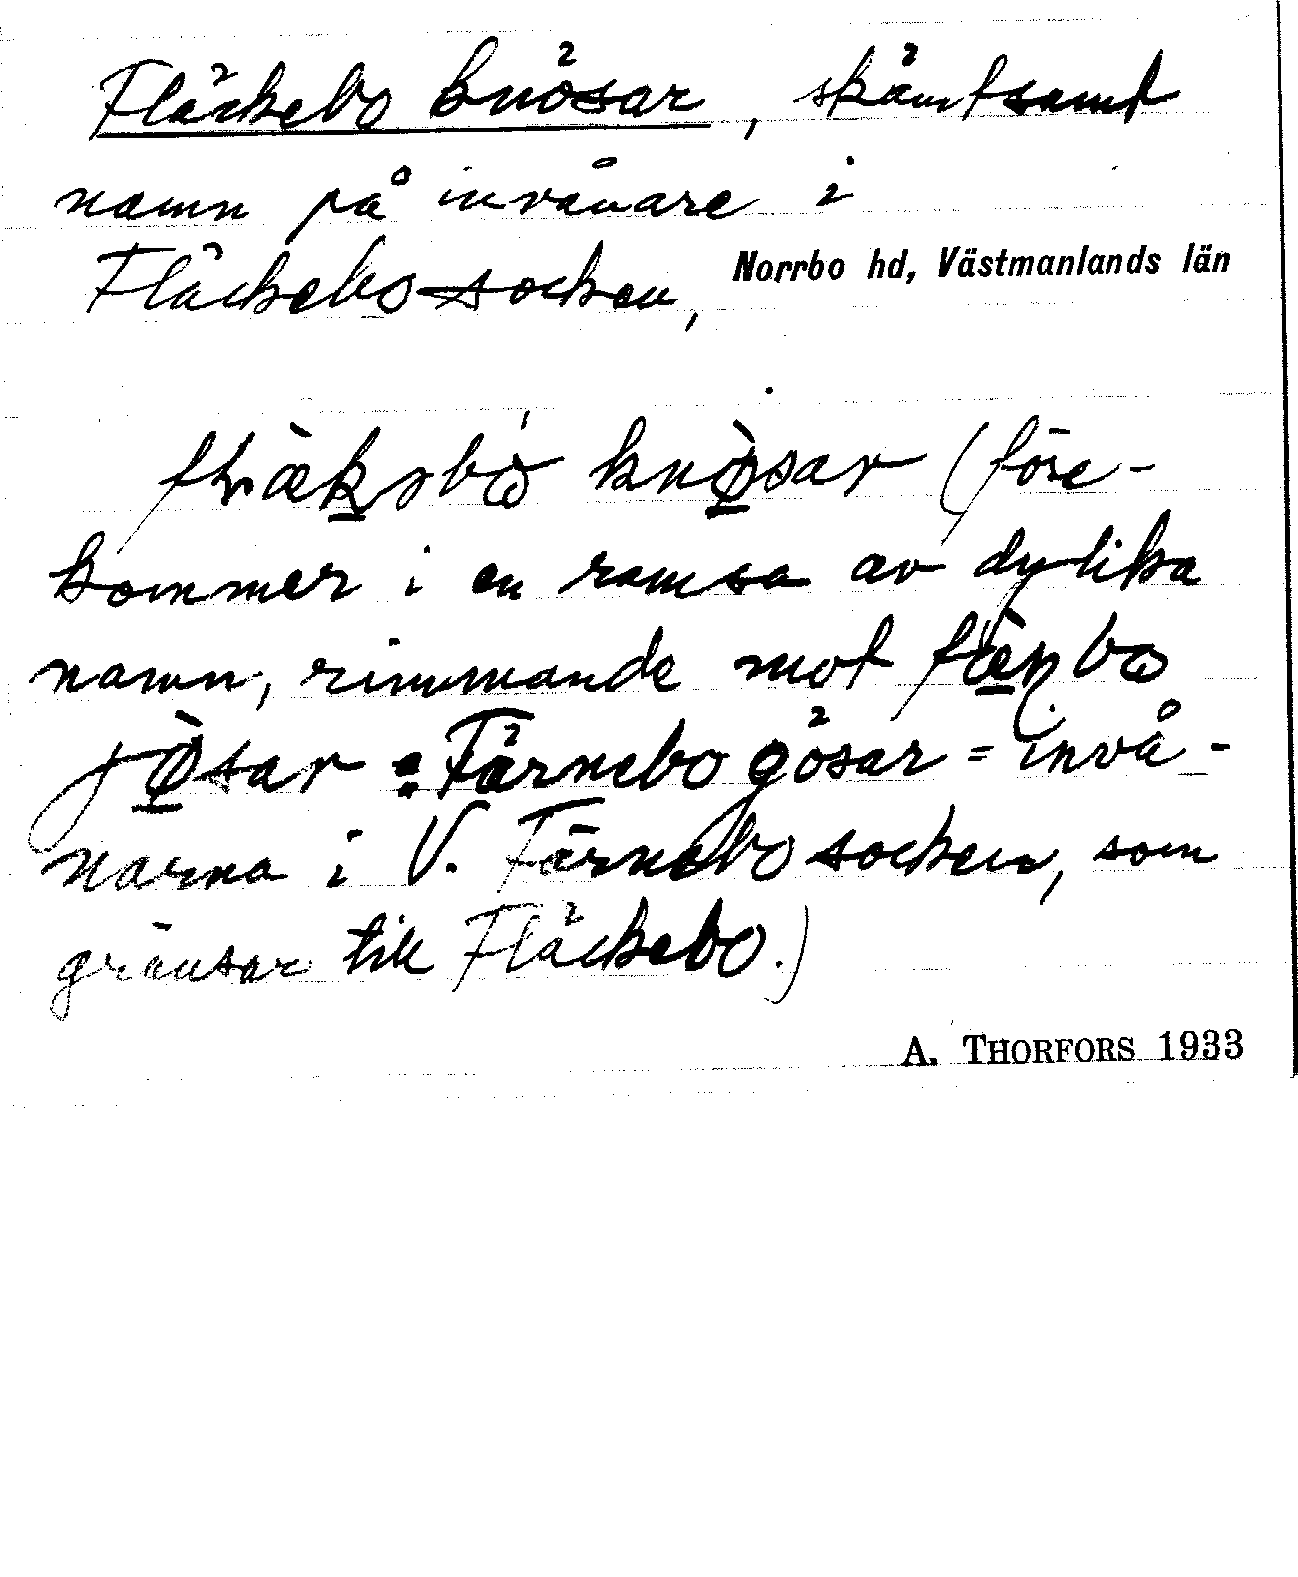 Fläckebo knösar, skämtsamt
namn på invånare i
Fläckebo socken, Norrbo hd, Västmanlands län
knø̀sar (före-
kommer i en ramsa av dylika
namn, rimmande mot
jø̀sar : Färnebo gösar = invå-
narna i V. Färnebo socken, som
gränsar till Fläckebo.)
A. THORFORS 1933